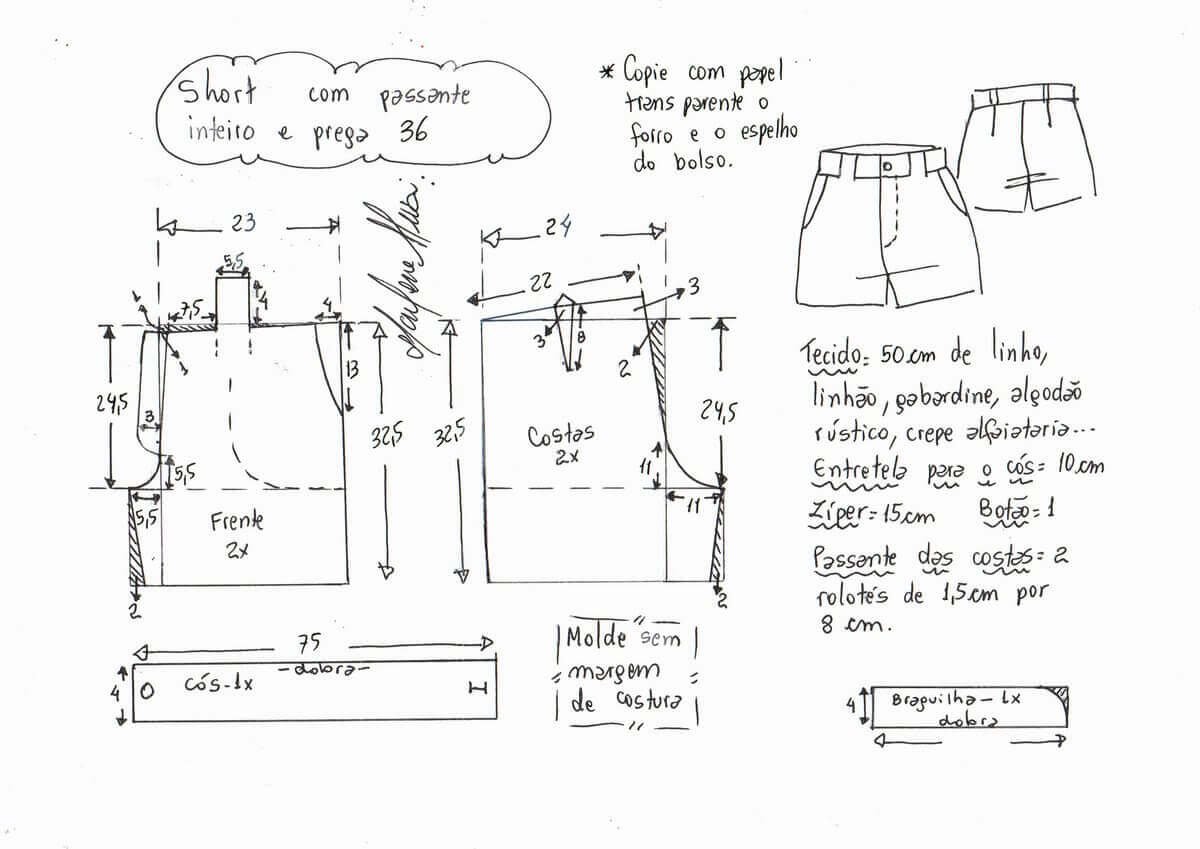 Short com passante
inteiro e prega 36
* Copie com papel
transparente o
forro e o espelho
do bolso.
23
5,5
7,5
4
4
1
1
13
24,5
3
5,5
5,5
32,5
Frente
2x
2
24
22
3
3
8
2
32,5
24,5
Costas
2x
11
11
2
Tecido= 50 cm de linho,
linhão, gabardine, algodão
rústico, crepe alfaiataria...
Entretela para o cós= 10 cm
Zíper= 15 cm Botão= 1
Passante das costas= 2
rolotés de 1,5 cm por
8 cm.
75
-dobra-
4
cós-1x
Molde sem
margem
de costura
4
Braguilha-1x
dobra